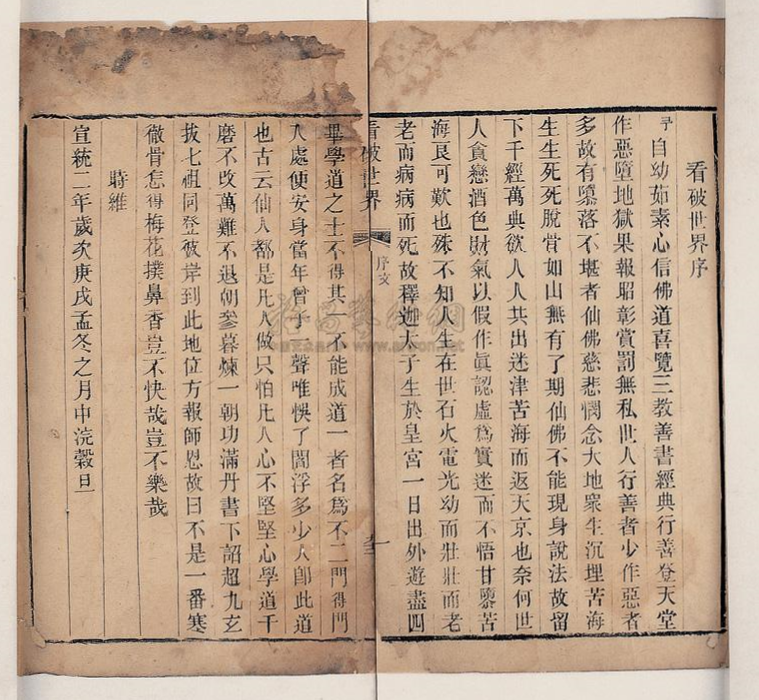 看破世界序
予自幼茹素心信佛道喜覽三教善書經典行善登天堂
作惡墮地獄果報昭彰賞罰無私世人行善者少作惡者
多故有墮落不堪者仙佛慈悲憫念大地衆生沉埋苦海
生生死死脫骨如山無有了期仙佛不能現身說法故留
下千經萬典欲人人共出迷津苦海而返天京也奈何世
人貪戀酒色財氣以假作眞認虛爲實迷而不悟甘墮苦
海良可歎也殊不知人生在世石火電光幼而壯壯而老
老而病病而死故釋迦太子生於皇宮一日出外遊盡四
看破世界
序文
一
畢學道之士不得其一不能成道一者名爲不二門得門
入處便安身當年曾子一聲唯悞了閻浮多少人卽此道
也古云仙人都是凡人做只怕凡人心不堅堅心學道千
磨不改萬難不退朝參暮煉一朝功滿丹書下詔超九玄
拔七祖同登彼岸到此地位方報師恩故曰不是一番寒
徹骨怎得梅花撲鼻香豈不快哉豈不樂哉
時維
宣統二年歲次庚戌孟冬之月中浣穀旦